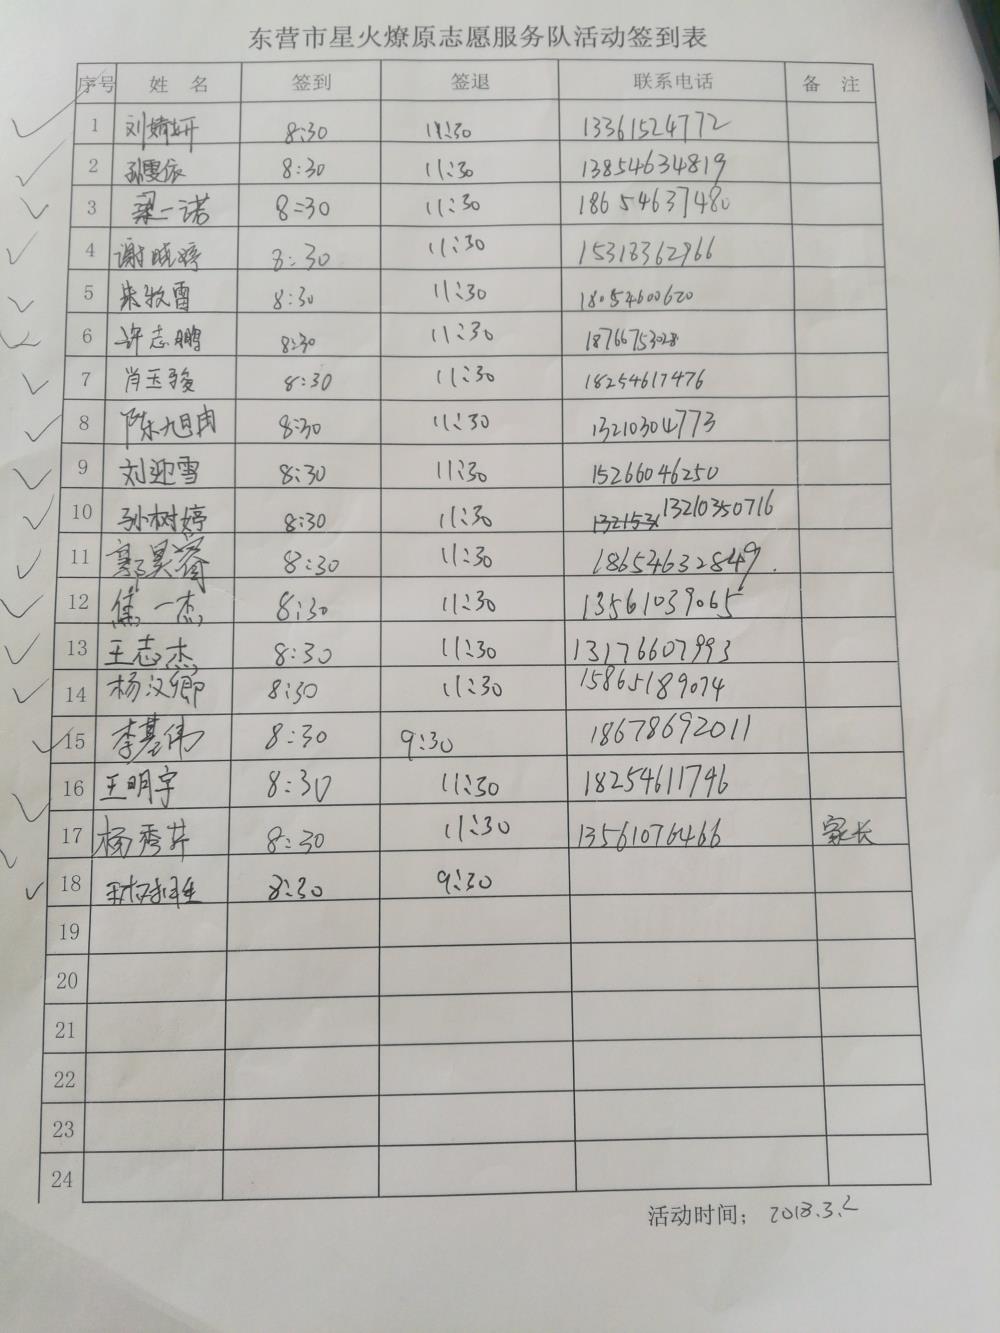 东营市星火燎原志愿服务队活动签到表
序号 姓 名 签到 签退 联系电话 备 注
1 刘婧妍 8:30 11:30 13361524772
2 孙雯依 8:30 11:30 13854634819
3 梁一诺 8:30 11:30 18654637480
4 谢晓婷 8:30 11:30 15318362966
5 8:30 11:30 18054600620
6 许志鹏 8:30 11:30 18766753028
7 肖玉骏 8:30 11:30 18254617476
8 陈旭冉 8:30 11:30 13210304773
9 刘迎雪 8:30 11:30 15266046250
10 孙树婷 8:30 11:30 13210350716
11 郭昊 8:30 11:30 18654632849
12 焦一杰 8:30 11:30 13561039065
13 王志杰 8:30 11:30 13176607993
14 杨汶卿 8:30 11:30 15865189074
15 李基伟 8:30 9:30 18678692011
16 王明宇 8:30 11:30 18254611746
17 杨秀芹 8:30 11:30 13561076466 家长
18 8:30 9:30
19
20
21
22
23
24
活动时间: 2018.3.2